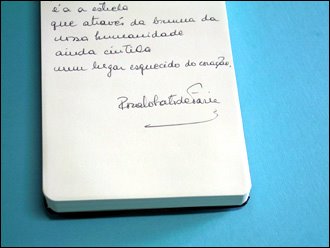 é a a estrela
que através da bruma da
nossa humanidade
ainda cintila
num lugar esquecido do coração.